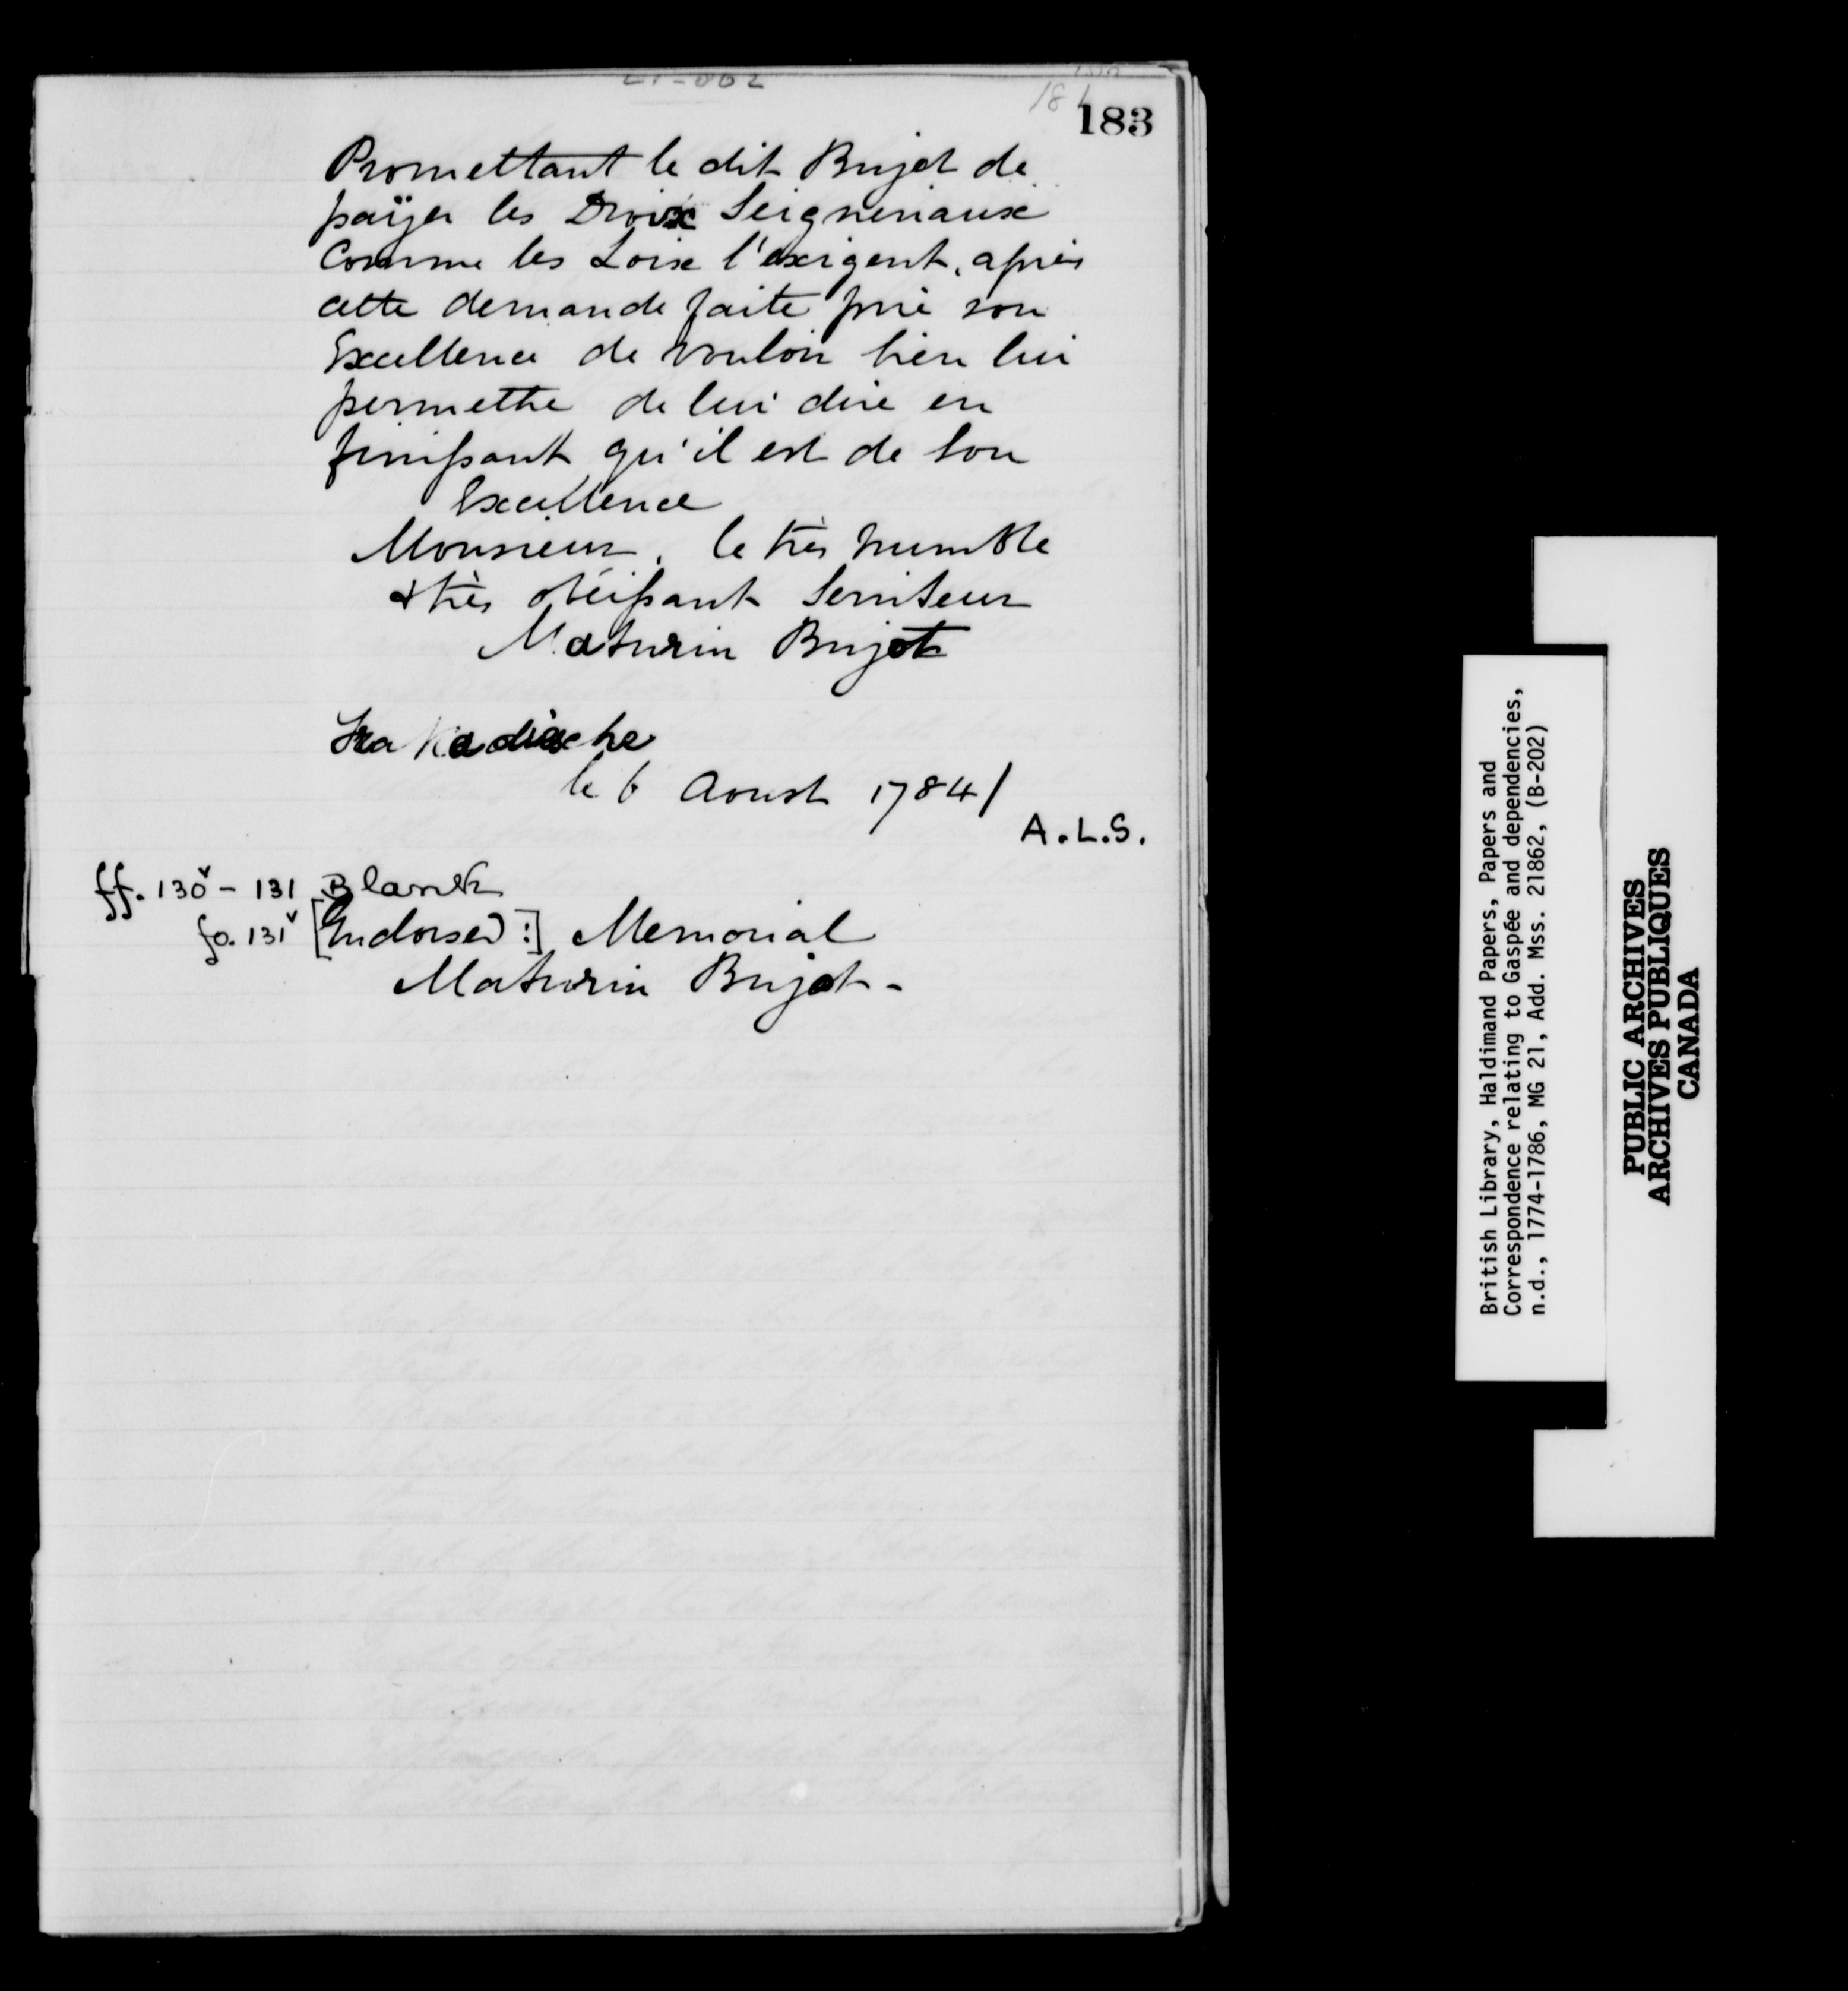 183
Promettant le dit Bujot de
païjer les Droix Seigneuriaux
Comme les Loix l'exigent, après
cette demande faite prie son
Excellence de vouloir bien lui
permettre de lui dire en
finissant qu'il est de Son
Excellence
Monsieur, le très humble
& très obéissant Serviteur
Maturin Bujot
Tra Kadiache
le 6 Aoust 1784/
A.L.S.
ff. 130v - 131 Blank
fo. 131v [Endorsed:] Memorial
Maturin Bujot -
British Library, Haldimand Papers, Papers and
Correspondence relating to Gaspée and dependencies,
n.d., 1774-1786, MG 21, Add. Mss. 21862, (B-202)
PUBLIC ARCHIVES
ARCHIVES PUBLIQUES
CANADA